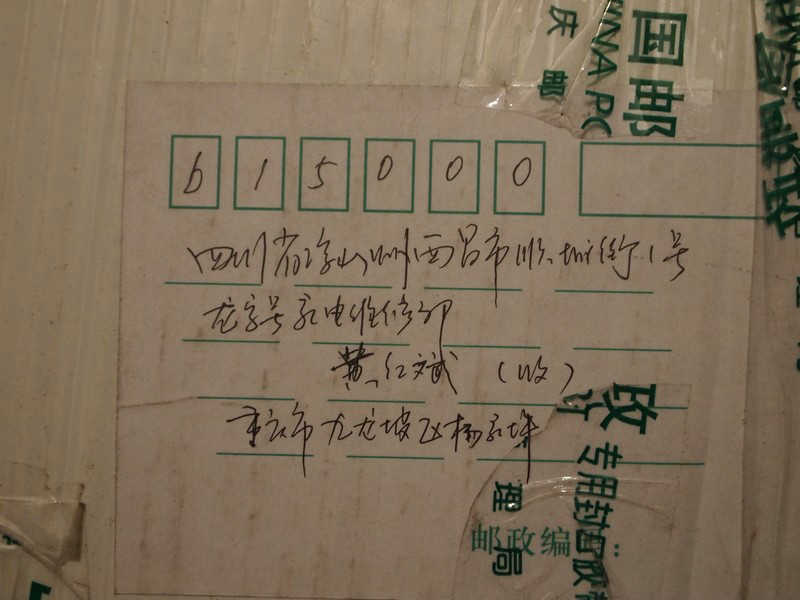 国邮
庆邮
615000
四川省凉山州西昌市顺城街1号
龙字号家电维修部
黄红斌（收）
重庆市九龙坡区杨家坪
政
专用封
理局
邮政编